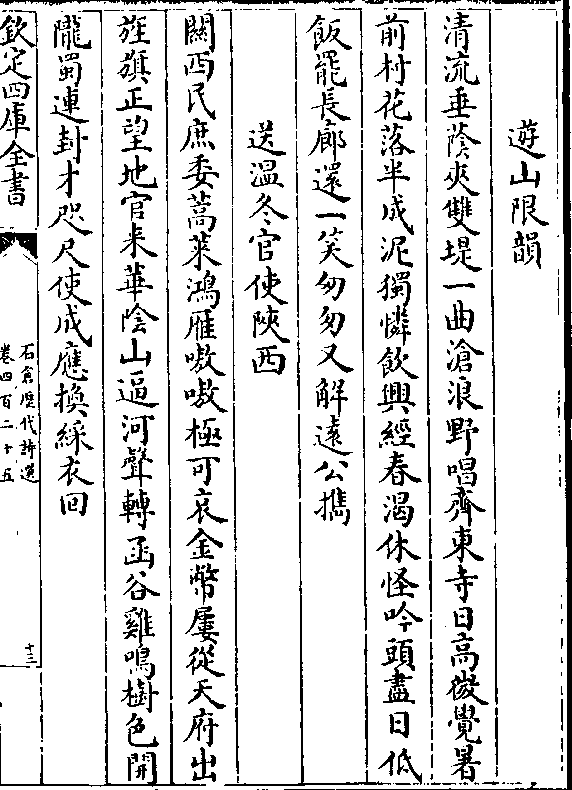 遊山限韻
清流垂蔭夾雙堤一曲滄浪野唱齊東寺日高微覺暑
前村花落半成泥獨憐飲興經春渴休怪吟頭盡日低
飯罷長廊還一笑匆匆又解遠公攜
送溫冬官使陝西
關西民庶委蒿萊鴻雁嗷嗷極可哀金幣屢從天府出
旌旗正望地官来華陰山逼河聲轉函谷雞鳴樹色開
隴蜀連封才咫尺使成應換綵衣回
欽定四庫全書
石倉歷代詩選
卷四百二十五
十三